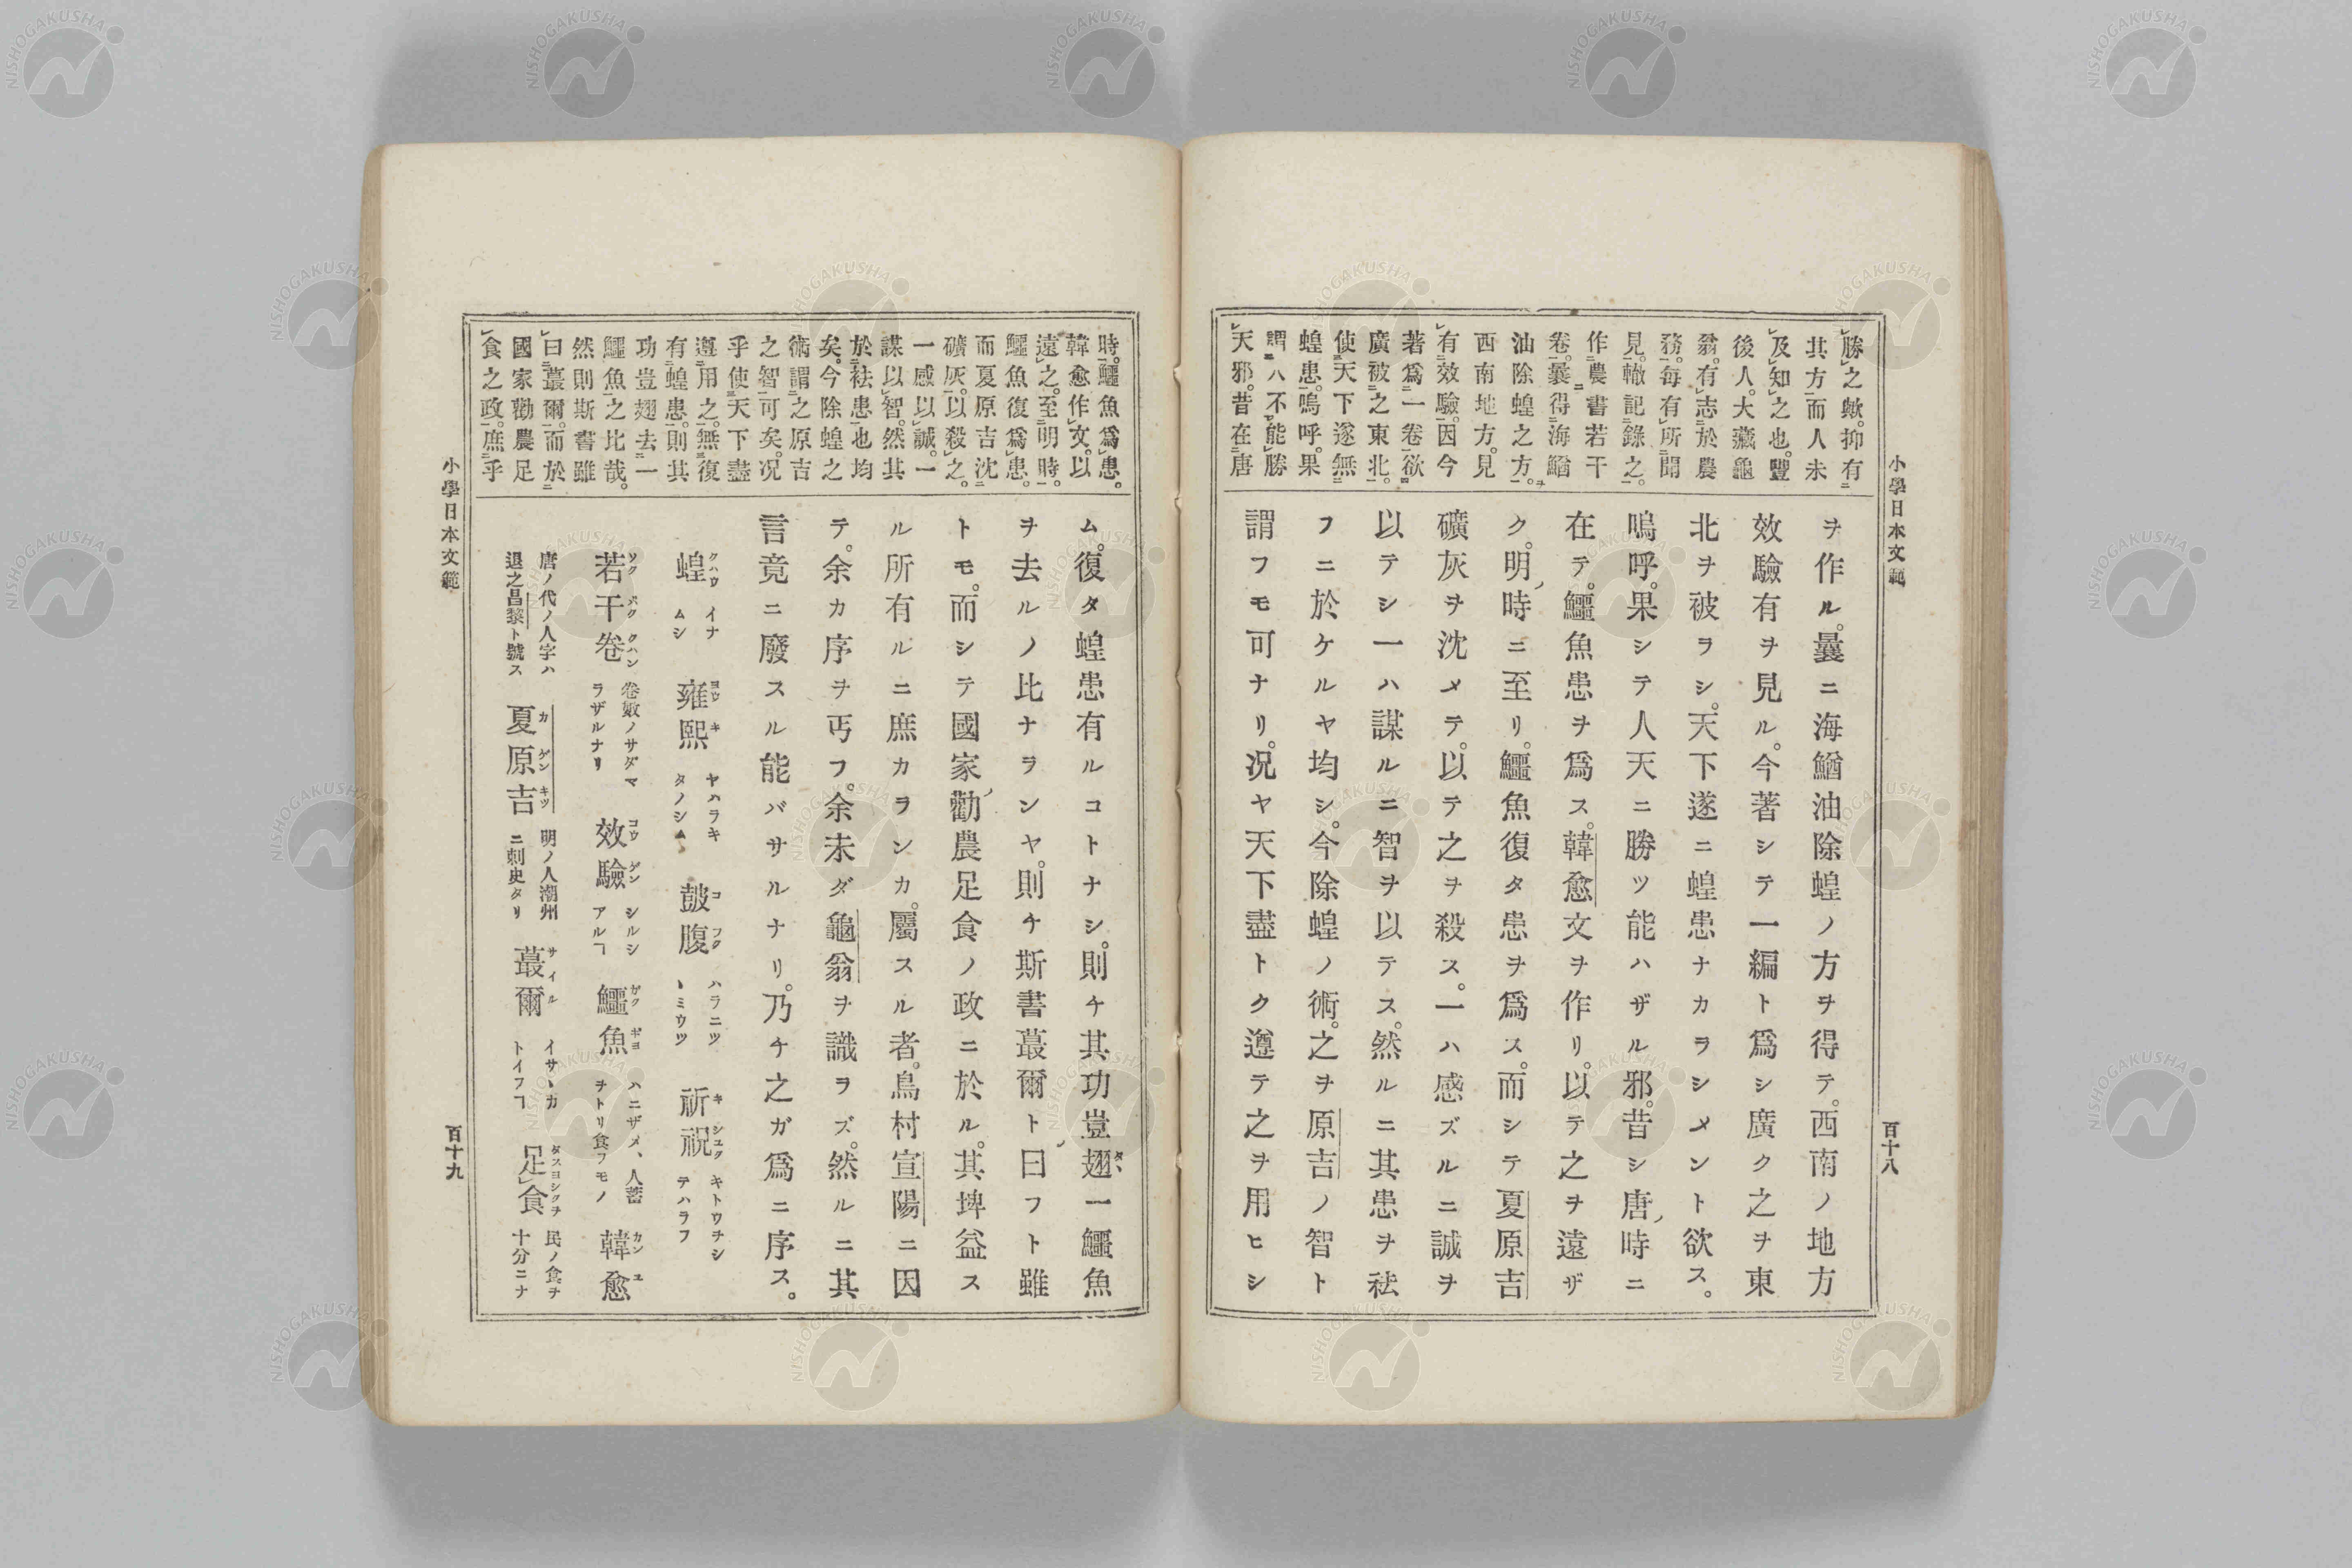 小學日本文範
百十八
勝之歟。抑有
其方而人未
及知之也。豐
後人。大藏龜
翁。有志於農
務。每有所聞
見。輙記錄之。
作農書若干
卷。曩得海鰌
油除蝗之方。
西南地方。見
有效驗。因今
著爲一卷欲
廣被之東北。
使天下遂無
蝗患。嗚呼。果
謂ハ不能勝
天邪。昔在唐
ヲ作ル。曩ニ海鰌油除蝗ノ方ヲ得テ。西南ノ地方
效驗有ヲ見ル。今著シテ一編ト爲シ廣ク之ヲ東
北ヲ被ラシ。天下遂ニ蝗患ナカラシメント欲ス。
嗚呼。果シテ人天ニ勝ツ能ハザル邪。昔シ唐ノ時ニ
在テ。鱷魚患ヲ爲ス。韓愈文ヲ作リ。以テ之ヲ遠ザ
ク。明ノ時ニ至リ。鱷魚復タ患ヲ爲ス。而シテ夏原吉
礦灰ヲ沈メテ。以テ之ヲ殺ス。一ハ感ズルニ誠ヲ
以テシ一ハ謀ルニ智ヲ以テス。然ルニ其患ヲ袪
フニ於ケルヤ均シ。今除蝗ノ術。之ヲ原吉ノ智ト
謂フモ可ナリ。况ヤ天下盡トク遵テ之ヲ用ヒシ
時。鱷魚爲患。
韓愈作文。以
遠之。至明時。
鱷魚復爲患。
而夏原吉沈
礦灰。以殺之。
一感以誠。一
謀以智。然其
於袪患也均
矣。今除蝗之
術謂之原吉
之智可矣。况
乎使天下盡
遵用之。無復
有蝗患。則其
功豈翅去一
鱷魚之比哉。
然則斯書雖
曰蕞爾。而於
國家勸農足
食之政。庶乎
ム。復タ蝗患有ルコトナシ。則チ其功豈翅一鱷魚
ヲ去ルノ比ナランヤ。則チ斯書蕞爾ト曰フト雖
トモ。而シテ國家ノ勸農足食ノ政ニ於ル。其埤益ス
ル所有ルニ庶カランカ。屬スル者。鳥村宣陽ニ因
テ。余カ序ヲ丐フ。余未ダ龜翁ヲ識ラズ。然ルニ其
言竟ニ廢スル能バサルナリ。乃チ之ガ爲ニ序ス。
蝗クハウ イナムシ 雍熙ヨウキ ヤハラキタノシム 皷腹コフク ハラニツヽミウツ 祈祝キシユク キトウヲシテハラフ
若干卷ソクバククハン 卷數ノサダマラザルナリ 效驗コウゲン シルシアルヿ 鱷魚ガクギヨ ハニザメ、人蓄ヲトリ食フモノ 韓愈カンユ
唐ノ代ノ人字ハ退之昌黎ト號ス 夏原吉カゲンキツ 明ノ人潮州ニ刺史タリ 蕞爾サイル イサヽカトイフヿ 足食タスヨシクヲ 民ノ食ヲ十分ニナ
小學日本文範
百十九